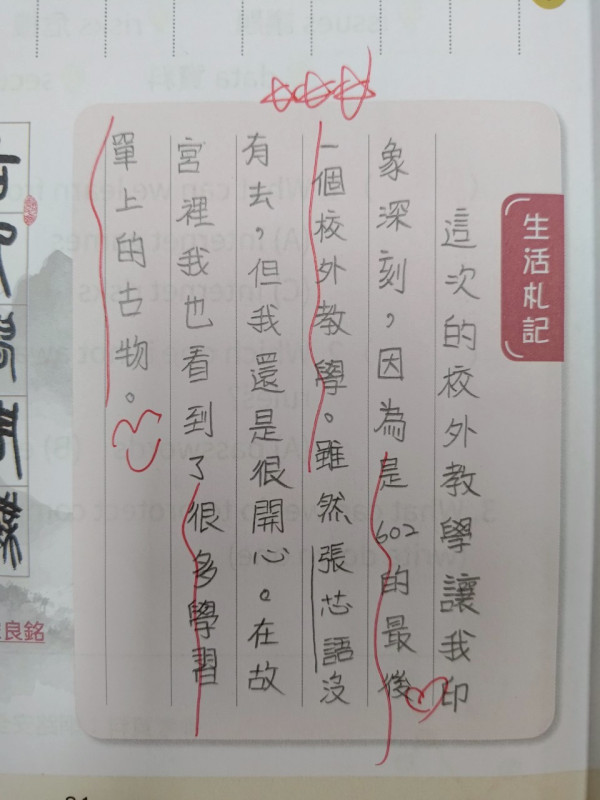 生活札記
這次的校外教學讓我印
象深刻，因為是602的最後
一個校外教學。雖然張芯語沒
有去，但我還是很開心。在故
宮裡我也看到了很多學習
單上的古物。
良銘